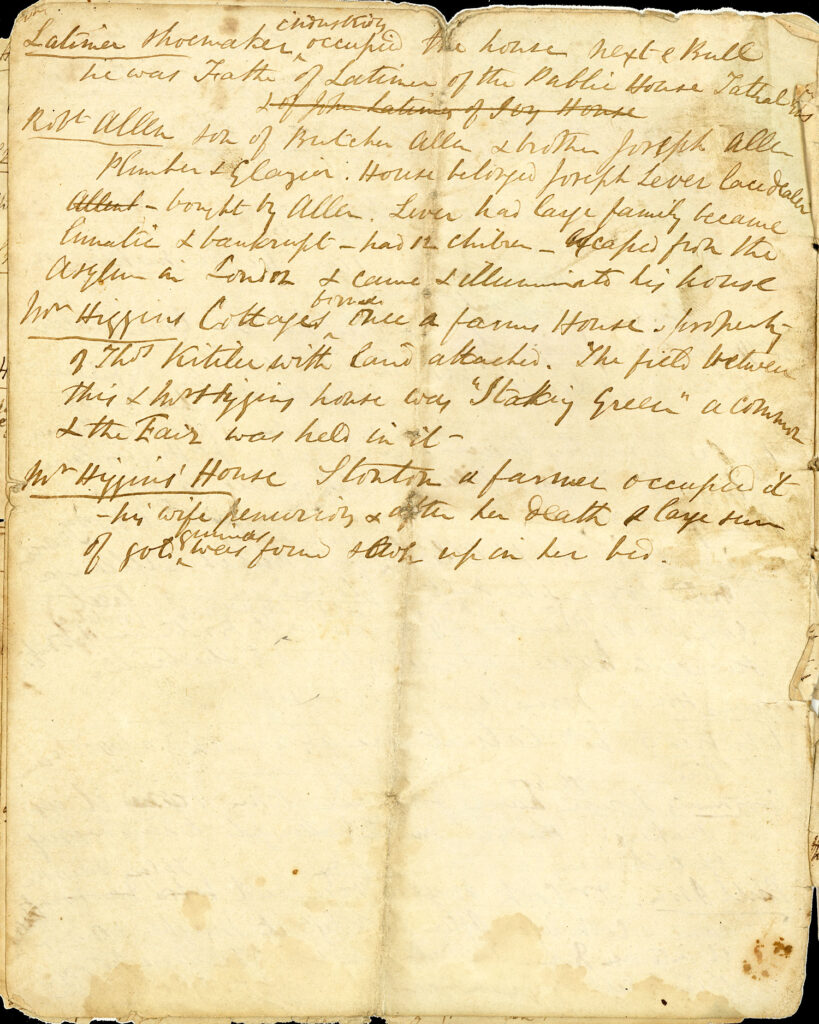 Latimer Shoemaker industrious occupied the house next e Bull
he was Father of Latimer of the Public House
& of John Latimer of Ivy House
Robt Allen son of Butcher Allen & brother Joseph Allen
Plumber & Glazier. House belonged Joseph Lever lacedealer
Allent - bought by Allen. Lever had large family became
lunatic & bankrupt - had 12 children - escaped from the
Asylum in London & came & illuminated his house
Mr Higgins Cottages once a farm House. property
of Thos Kitelee with land attached. The field between
this & Mr Higgins house was "Stalking Green" a common
& the Fair was held in it -
Mr Higgins' House Stonton a farmer occupied it
- his wife penurious & after her death a large sum
of gold guineas was found up in her bed.